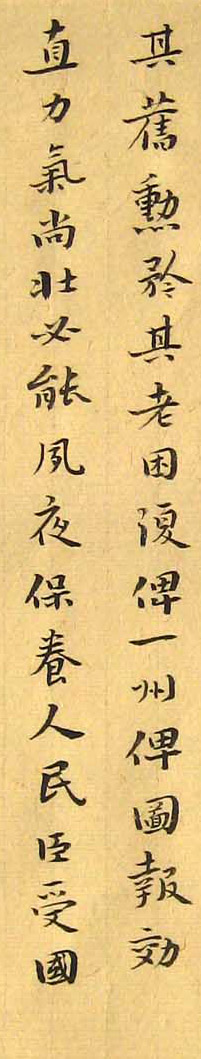 其舊勳矜其老困復俾一州俾圖報効
直力氣尚壯必能夙夜保養人民臣受國